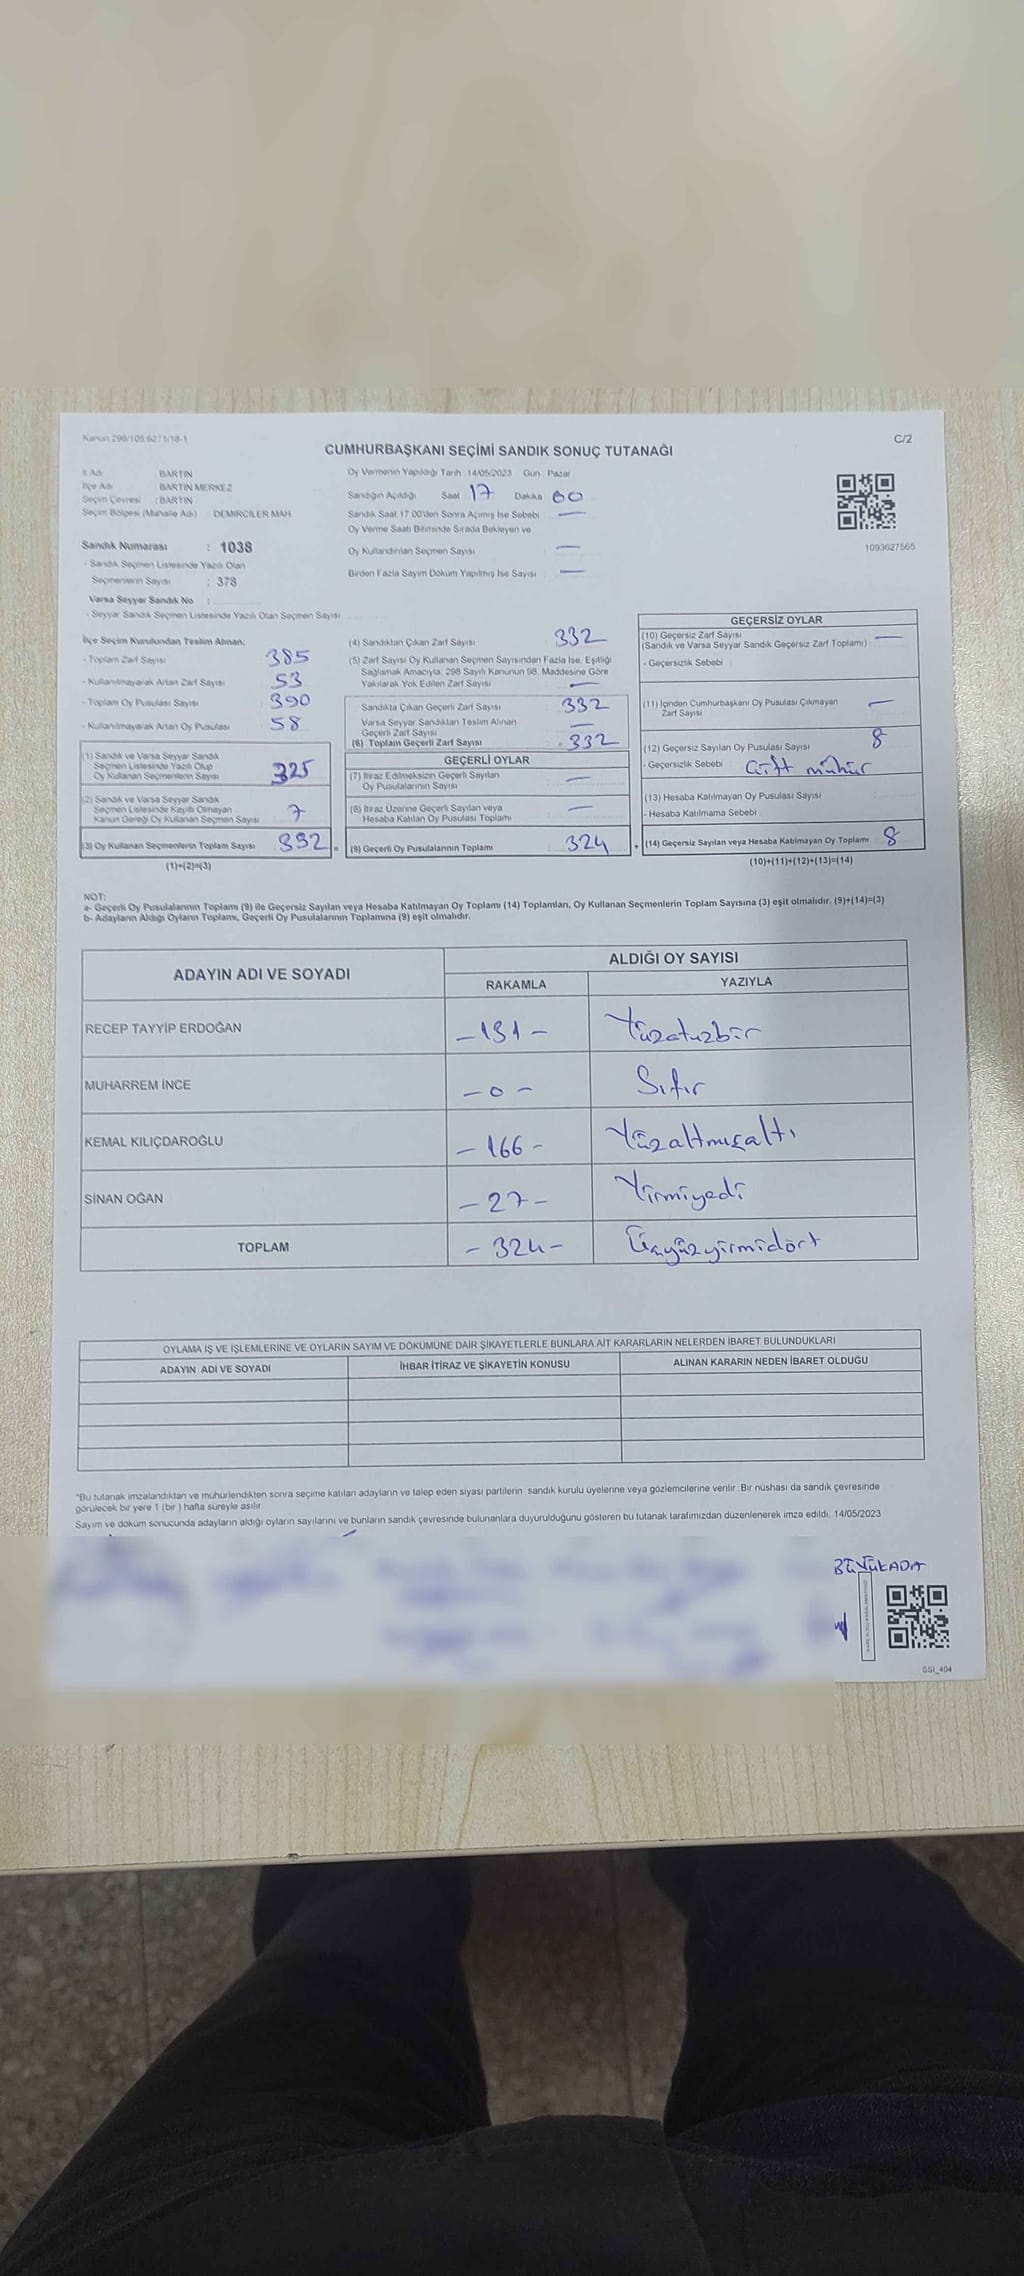 Kanun 298/105,6271/18-1
C/2
CUMHURBAŞKANI SEÇİMİ SANDIK SONUÇ TUTANAĞI
İl Adı BARTIN
İlçe Adı BARTIN MERKEZ
Seçim Çevresi : BARTIN
Seçim Bölgesi (Mahalle Adı) : DEMİRCİLER MAH
Sandık Numarası : 1038
- Sandık Seçmen Listesinde Yazılı Olan
Seçmenlerin Sayısı : 378
Varsa Seyyar Sandık No :
- Seyyar Sandık Seçmen Listesinde Yazılı Olan Seçmen Sayısı
Oy Vermenin Yapıldığı Tarih :14/05/2023 Gün : Pazar
Sandığın Açıldığı Saat 17 Dakika 00
Sandık Saat 17.00'den Sonra Açılmış İse Sebebi —
Oy Verme Saati Bitiminde Sırada Bekleyen ve
Oy Kullandırılan Seçmen Sayısı —
Birden Fazla Sayım Döküm Yapılmış İse Sayısı —
1093627565
İlçe Seçim Kurulundan Teslim Alınan;
- Toplam Zarf Sayısı 385
- Kullanılmayarak Artan Zarf Sayısı 53
- Toplam Oy Pusulası Sayısı 390
- Kullanılmayarak Artan Oy Pusulası 58
(1) Sandık ve Varsa Seyyar Sandık
Seçmen Listesinde Yazılı Olup
Oy Kullanan Seçmenlerin Sayısı 325
(2) Sandık ve Varsa Seyyar Sandık
Seçmen Listesinde Kayıtlı Olmayan
Kanun Gereği Oy Kullanan Seçmen Sayısı 7
(3) Oy Kullanan Seçmenlerin Toplam Sayısı 332 =
(1)+(2)=(3)
(4) Sandıktan Çıkan Zarf Sayısı 332
(5) Zarf Sayısı Oy Kullanan Seçmen Sayısından Fazla İse, Eşitliği
Sağlamak Amacıyla, 298 Sayılı Kanunun 98. Maddesine Göre
Yakılarak Yok Edilen Zarf Sayısı —
Sandıkta Çıkan Geçerli Zarf Sayısı 332
Varsa Seyyar Sandıktan Teslim Alınan
Geçerli Zarf Sayısı —
(6) Toplam Geçerli Zarf Sayısı 332
GEÇERLİ OYLAR
(7) İtiraz Edilmeksizin Geçerli Sayılan
Oy Pusulalarının Sayısı —
(8) İtiraz Üzerine Geçerli Sayılan veya
Hesaba Katılan Oy Pusulası Toplamı —
(9) Geçerli Oy Pusulalarının Toplamı 324 +
GEÇERSİZ OYLAR
(10) Geçersiz Zarf Sayısı —
(Sandık ve Varsa Seyyar Sandık Geçersiz Zarf Toplamı)
- Geçersizlik Sebebi
(11) İçinden Cumhurbaşkanı Oy Pusulası Çıkmayan
Zarf Sayısı —
(12) Geçersiz Sayılan Oy Pusulası Sayısı 8
- Geçersizlik Sebebi Çift mühür
(13) Hesaba Katılmayan Oy Pusulası Sayısı
- Hesaba Katılmama Sebebi
(14) Geçersiz Sayılan veya Hesaba Katılmayan Oy Toplamı 8
(10)+(11)+(12)+(13)=(14)
NOT:
a- Geçerli Oy Pusulalarının Toplamı (9) ile Geçersiz Sayılan veya Hesaba Katılmayan Oy Toplamı (14) Toplamları, Oy Kullanan Seçmenlerin Toplam Sayısına (3) eşit olmalıdır. (9)+(14)=(3)
b- Adayların Aldığı Oyların Toplamı, Geçerli Oy Pusulalarının Toplamına (9) eşit olmalıdır.
ADAYIN ADI VE SOYADI ALDIĞI OY SAYISI
RAKAMLA YAZIYLA
RECEP TAYYİP ERDOĞAN -131- Yüzotuzbir
MUHARREM İNCE -0- Sıfır
KEMAL KILIÇDAROĞLU -166- Yüzaltmışaltı
SİNAN OĞAN -27- Yirmiyedi
TOPLAM -324- Üçyüzyirmidört
OYLAMA İŞ VE İŞLEMLERİNE VE OYLARIN SAYIM VE DÖKÜMÜNE DAİR ŞİKAYETLERLE BUNLARA AİT KARARLARIN NELERDEN İBARET BULUNDUKLARI
ADAYIN ADI VE SOYADI İHBAR İTİRAZ VE ŞİKAYETİN KONUSU ALINAN KARARIN NEDEN İBARET OLDUĞU
"Bu tutanak imzalandıktan ve mühürlendikten sonra seçime katılan adayların ve talep eden siyasi partilerin sandık kurulu üyelerine veya gözlemcilerine verilir. Bir nüshası da sandık çevresinde
görülecek bir yere 1 (bir ) hafta süreyle asılır.
Sayım ve döküm sonucunda adayların aldığı oyların sayılarını ve bunların sandık çevresinde bulunanlara duyurulduğunu gösteren bu tutanak tarafımızdan düzenlenerek imza edildi. 14/05/2023
BÜYÜKADA
SSI_404